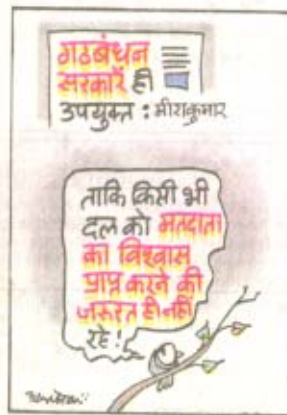 गठबंधन
सरकारें ही
उपयुक्त : मीराकुमार
ताकि किसी भी
दल को मतदाता
का विश्वास
प्राप्त करने की
जरूरत ही नहीं
रहे !